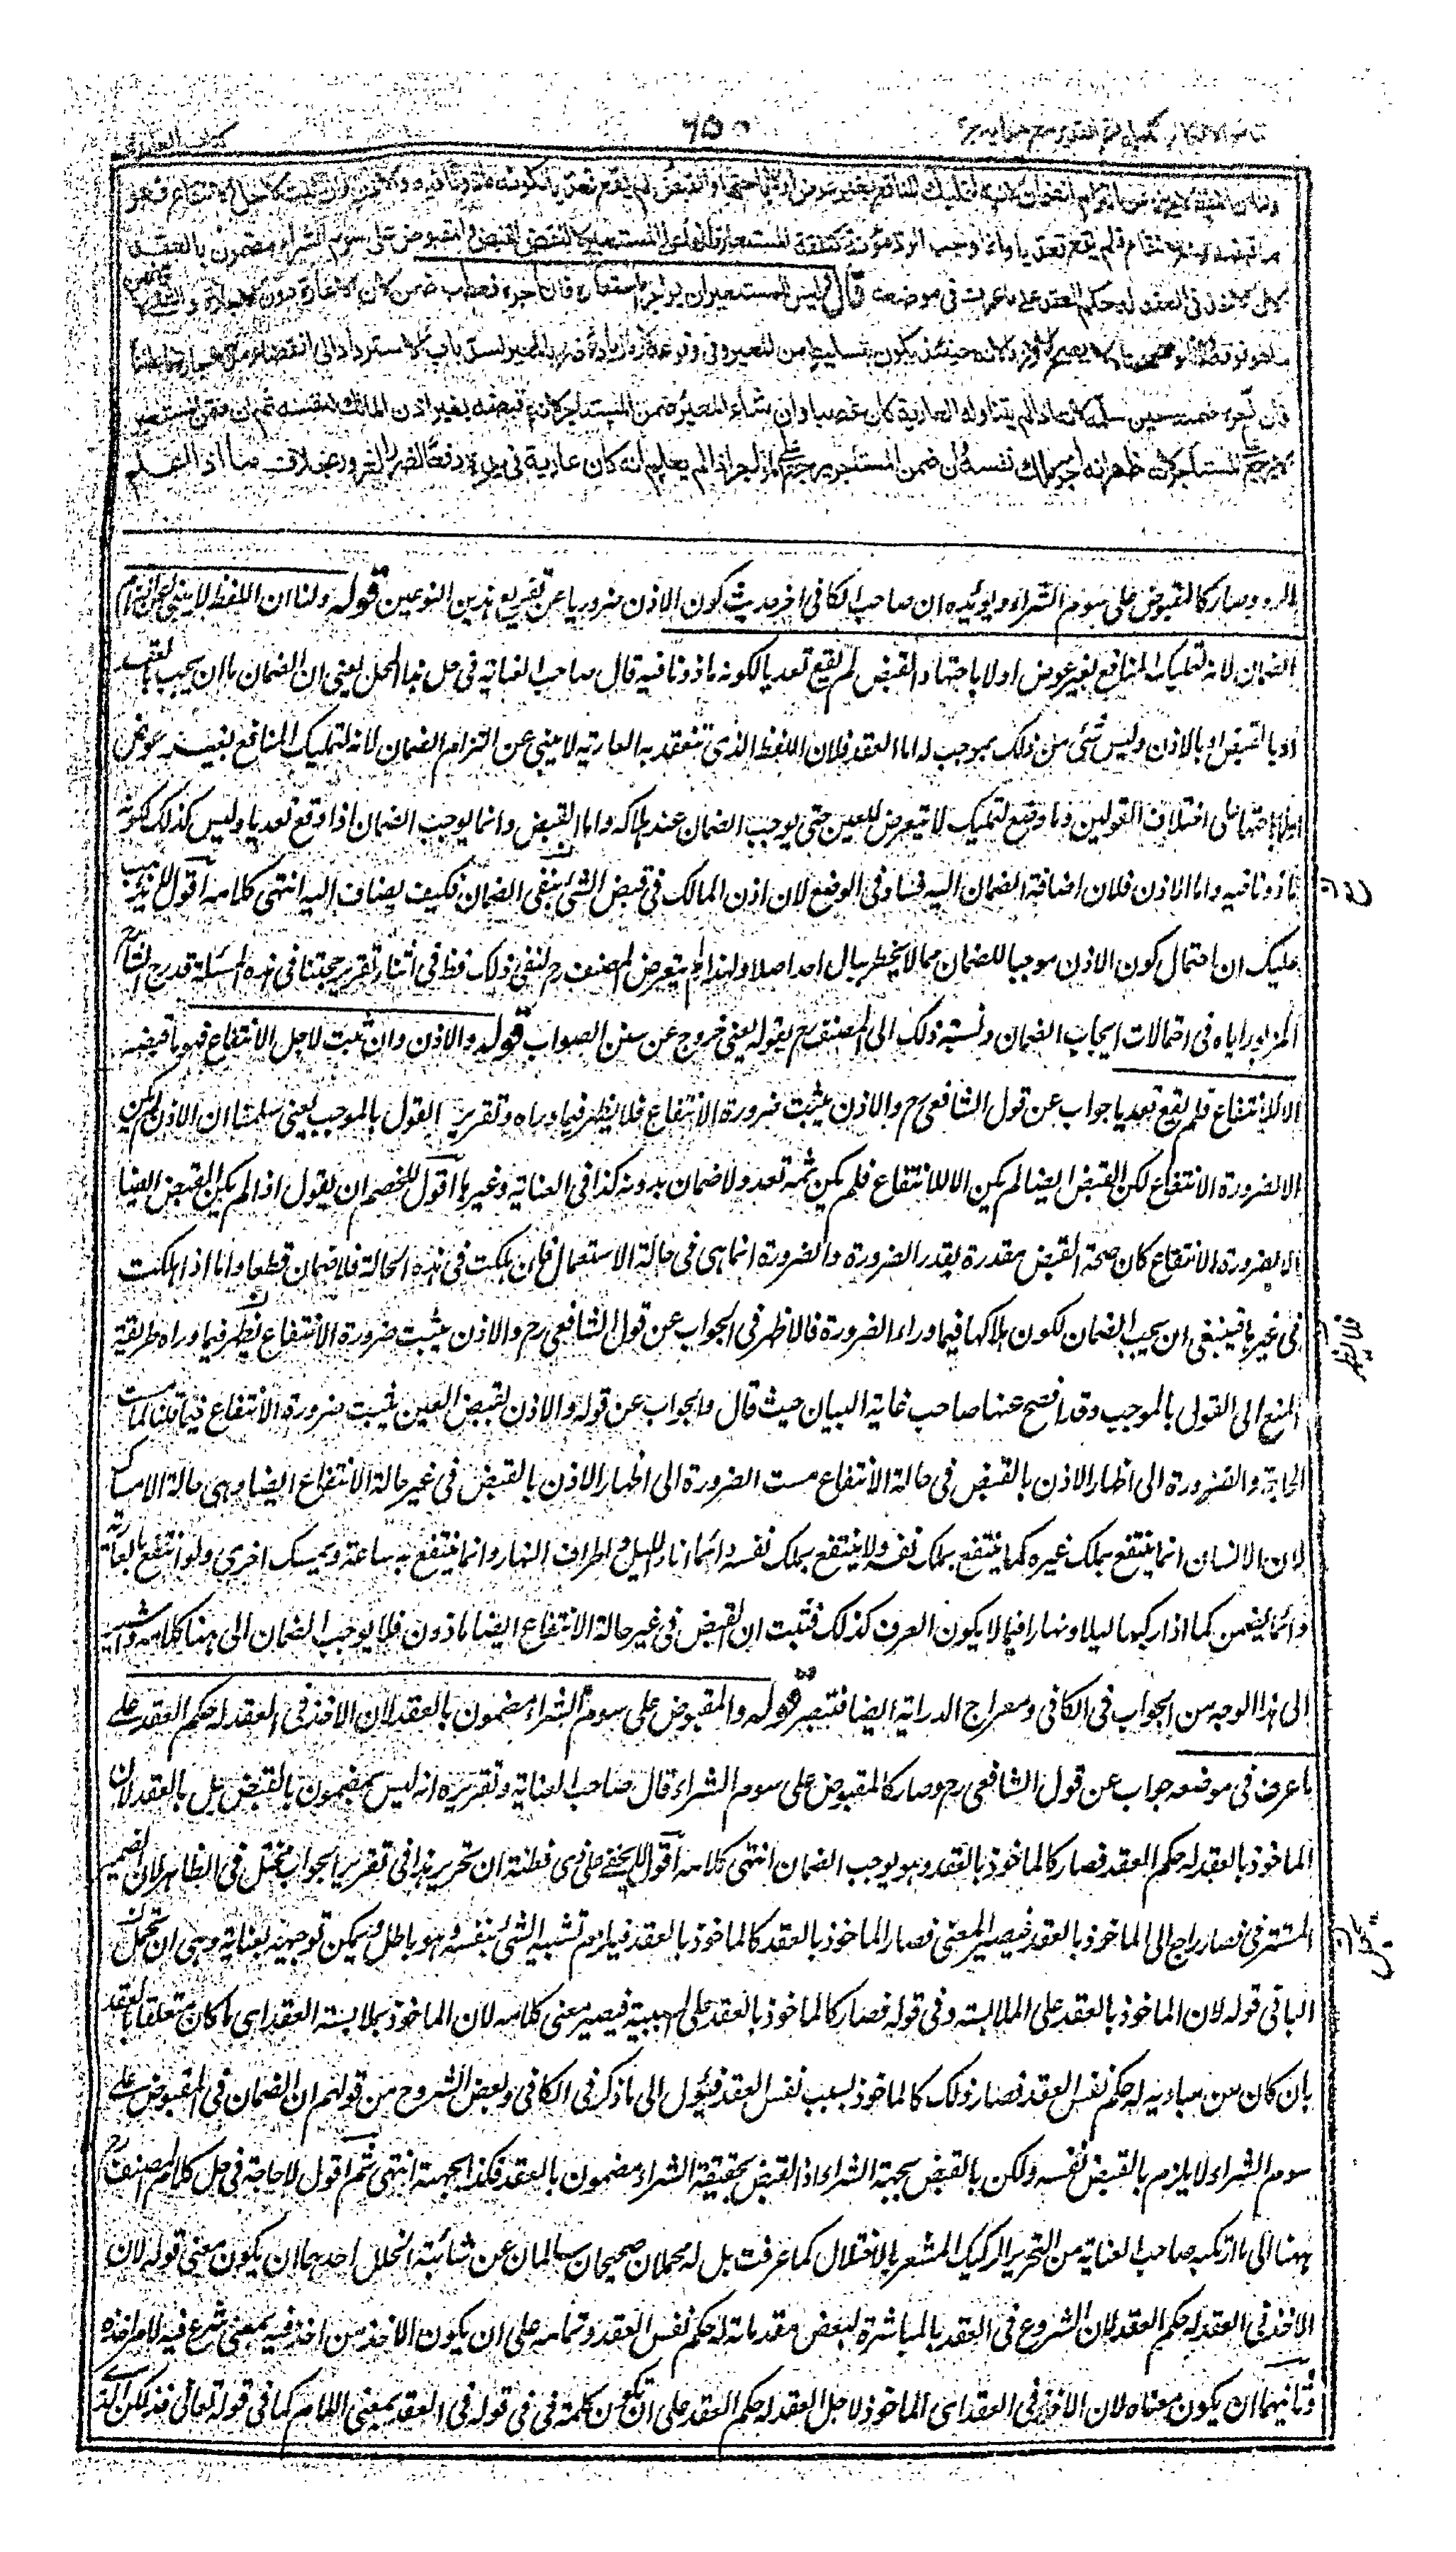 نتائج الافكار تكملة فتح القدير مع هداية
كتاب العارية
ولنا ان اللفظ لا ينبئ عن التزام الضمان لانه لتمليك المنافع بغير عوض او لاباحتها والقبض لم يقع تعديا لكونه ماذونا فيه والاذن وان ثبت لاجل الانتفاع فهو
ما قبضه الا للانتفاع فلم يقع تعديا وانما وجب الرد مؤنة كنفقة المستعار فانها على المستعير لا لنقض القبض والمقبوض على سوم الشراء مضمون بالعقد
لان الاخذ في العقد له حكم العقد على ما عرف في موضعه قال وليس للمستعير ان يواجر ما استعاره فان آجره فعطب ضمن لان الاعارة دون الاجارة والشئ لا يتضمن
ما هو فوقه ولانا لو صححناه لا يصح الا لازما لانه حينئذ يكون بتسليط من المعير وفي وقوعه لازما زيادة ضرر بالمعير لسد باب الاسترداد الى انقضاء مدة الاجارة فابطلناه
فان آجره ضمنه حين سلمه لانه اذا لم يتناوله العارية كان غصبا وان شاء المعير ضمن المستاجر لانه قبضه بغير اذن المالك لنفسه ثم ان ضمن المستعير
لا يرجع على المستاجر لانه ظهر انه آجر ملك نفسه وان ضمن المستاجر يرجع على المواجر اذا لم يعلم انه كان عارية في يده دفعا لضرر الغرور بخلاف ما اذا علم
الرد وصار كالمقبوض على سوم الشراء ويؤيده ان صاحب الكافي اخر حديث كون الاذن ضروريا عن تفريع هذين النوعين قوله ولنا ان اللفظ لا ينبئ عن التزام
الضمان لانه لتمليك المنافع بغير عوض او لاباحتها والقبض لم يقع تعديا لكونه ماذونا فيه قال صاحب العناية في حل هذا المحل يعني ان الضمان اما ان يجب بالعقد
او بالقبض او بالاذن وليس شئ من ذلك بموجب له اما العقد فلان اللفظ الذي تنعقد به العارية لا ينبئ عن التزام الضمان لانه لتمليك المنافع بغير عوض
او لاباحتها على اختلاف القولين وما وضع لتمليك لا يتعرض للعين حتى يوجب الضمان عند هلاكه واما القبض وانما يوجب الضمان اذا وقع تعديا وليس كذلك لكونه
ماذونا فيه واما الاذن فلان اضافة الضمان اليه فساد في الوضع لان اذن المالك في قبض الشئ ينفي الضمان فكيف يضاف اليه انتهى كلامه اقول لا يذهب
عليك ان احتمال كون الاذن موجبا للضمان مما لا يخطر ببال احد اصلا ولهذا لم يتعرض المصنف رح لنفي ذلك قط في اثناء تقرير حجتنا في هذه المسئلة فدرج الشارح
المزبور اياه في احتمالات ايجاب الضمان ونسبة ذلك الى المصنف رح بقوله يعني خروج عن سنن الصواب قوله والاذن وان ثبت لاجل الانتفاع فهو ما قبضه
الا للانتفاع فلم يقع تعديا جواب عن قول الشافعي رح والاذن يثبت ضرورة الانتفاع فلا يظهر فيما وراءه وتقريره القول بالموجب يعني سلمنا ان الاذن لم يكن
الا لضرورة الانتفاع لكن القبض ايضا لم يكن الا للانتفاع فلم يكن ثمة تعد ولا ضمان بدونه كذا في العناية وغيرها اقول للخصم ان يقول اذا لم يكن القبض ايضا
الا لضرورة الانتفاع كان صحة القبض مقدرة بقدر الضرورة والضرورة انما هي في حالة الاستعمال فان هلكت في هذه الحالة فلا ضمان قطعا واما اذا هلكت
في غيرها فينبغي ان يجب الضمان لكون هلاكها فيما وراء الضرورة فالاظهر في الجواب عن قول الشافعي رح والاذن يثبت ضرورة الانتفاع يظهر فيما وراه طريقة
المنع لا القول بالموجب وقد افصح عنها صاحب غاية البيان حيث قال والجواب عن قوله والاذن لقبض العين يثبت ضرورة الانتفاع فيما قلنا لما مست
الحاجة والضرورة الى اظهار الاذن بالقبض في حالة الانتفاع مست الضرورة الى اظهار الاذن بالقبض في غير حالة الانتفاع ايضا وهي حالة الامساك
لان الانسان انما ينتفع بملك غيره كما ينتفع بملك نفسه ولا ينتفع بملك نفسه دائما اناء الليل واطراف النهار وانما ينتفع به ساعة ويمسك اخرى ولو انتفع بالعارية
دائما يضمن كما اذا ركبها ليلا ونهارا فيما لا يكون العرف كذلك فثبت ان القبض في غير حالة الانتفاع ايضا ماذون فلا يوجب الضمان الى هنا كلامه واشير
الى هذا الوجه من الجواب في الكافي ومعراج الدراية ايضا فتبصر قوله والمقبوض على سوم الشراء مضمون بالعقد لان الاخذ في العقد له حكم العقد على
ما عرف في موضعه جواب عن قول الشافعي رح وصار كالمقبوض على سوم الشراء قال صاحب العناية وتقريره انه ليس بمضمون بالقبض بل بالعقد لان
الماخوذ بالعقد له حكم العقد فصار كالماخوذ بالعقد وهو يوجب الضمان انتهى كلامه اقول لا يخفى على ذي فطنة ان تحرير هذا في تقرير الجواب مختل في الظاهر لان الضمير
المستتر في فصار راجع الى الماخوذ بالعقد فيصير المعنى فصار الماخوذ بالعقد كالماخوذ بالعقد فيلزم تشبيه الشئ بنفسه وهو باطل ويمكن توجيهه بعناية وهي ان تحمل
الباء في قوله لان الماخوذ بالعقد على الملابسة وفي قوله فصار كالماخوذ بالعقد على السببية فيصير معنى كلامه لان الماخوذ بملابسة العقد اي ما كان متعلقا بالعقد
بان كان من مباديه له حكم نفس العقد فصار ذلك كالماخوذ بسبب نفس العقد فيؤول الى ما ذكر في الكافي وبعض الشروح من قولهم ان الضمان في المقبوض على
سوم الشراء لا يلزم بالقبض نفسه ولكن بالقبض بجهة الشراء اذ القبض بحقيقة الشراء مضمون بالعقد فكذا بجهته انتهى ثم اقول لا حاجة في حل كلام المصنف رح
ههنا الى ما ارتكبه صاحب العناية من التحرير الركيك المشعر بالاختلال كما عرفت بل له محملان صحيحان سالمان عن شائبة الخلل احدهما ان يكون معنى قوله لان
الاخذ في العقد له حكم العقد لان الشروع في العقد بالمباشرة لبعض مقدماته له حكم نفس العقد وتمامه على ان يكون الاخذ من اخذ فيه بمعنى شرع فيه لا من اخذه
وثانيهما ان يكون معناه لان الاخذ في العقد اي الماخوذ لاجل العقد له حكم العقد على ان تكون كلمة في في قوله في العقد بمعنى اللام كما في قوله تعالى فذلكن الذي